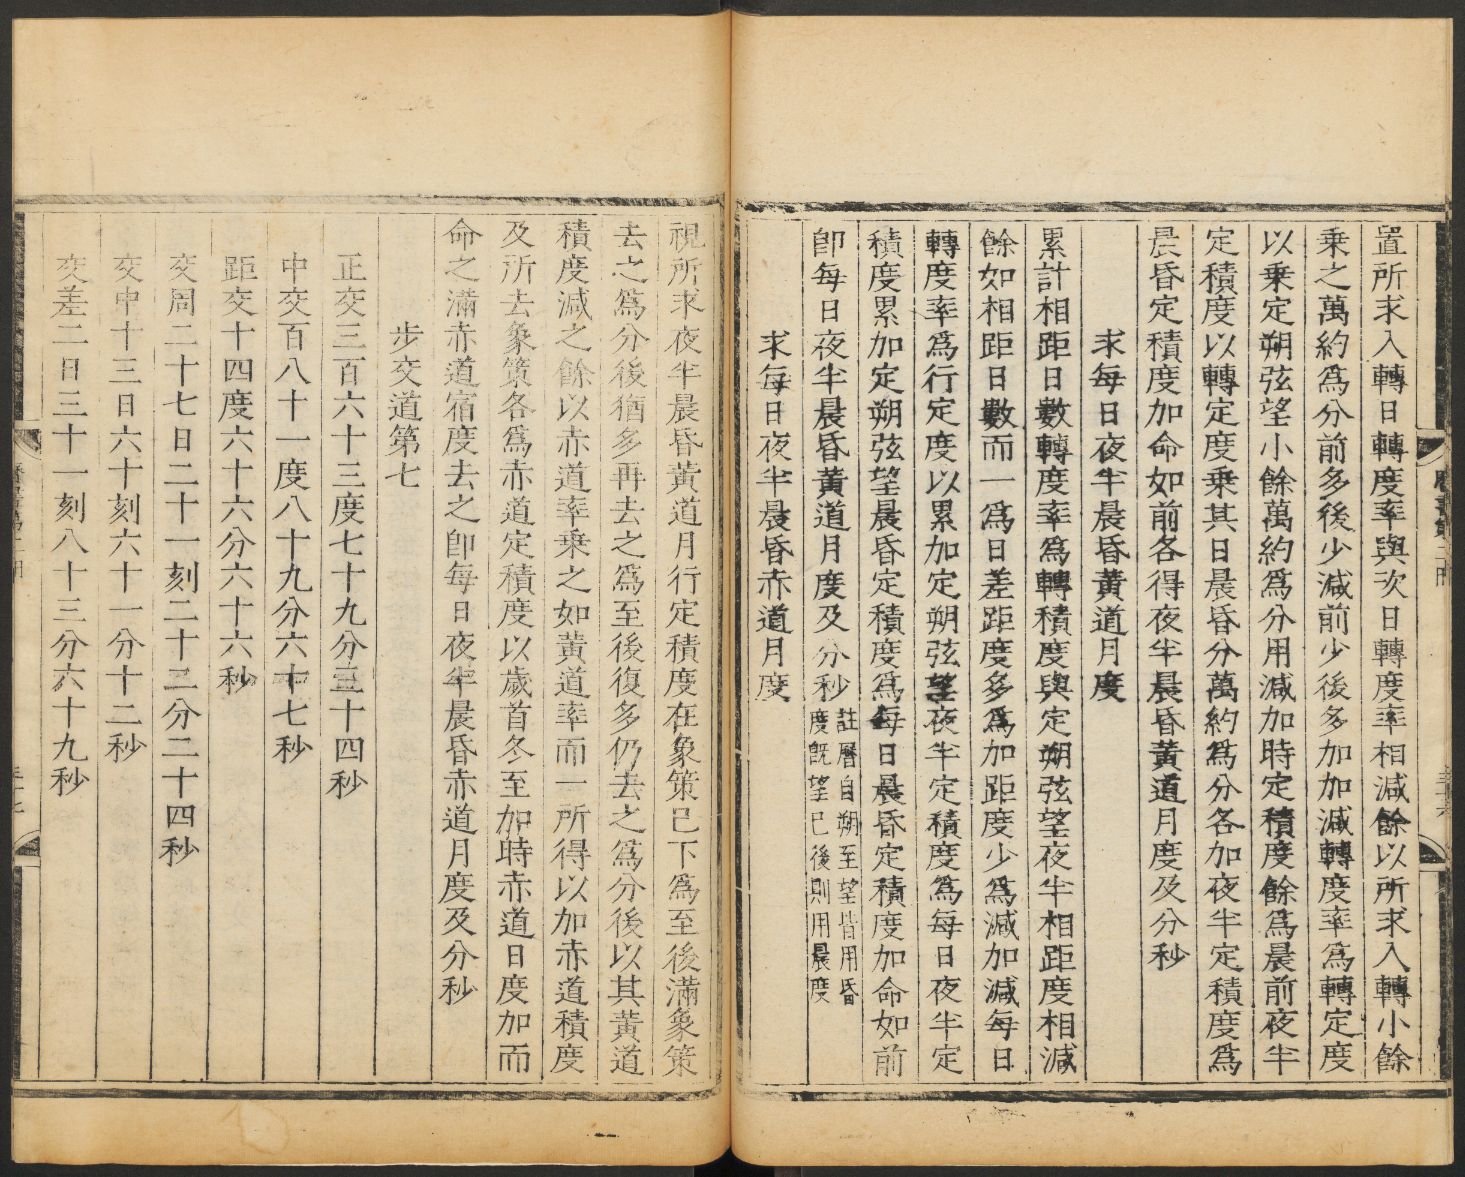 置所求入轉日轉度率與次日轉度率相減餘以所求入轉小餘
乗之萬約爲分前多後少減前少後多加加減轉度率爲轉定度
以乗定朔弦望小餘萬約爲分用減加時定積度餘爲晨前夜半
定積度以轉定度乗其日晨昏分萬約爲分各加夜半定積度爲
晨昏定積度加命如前各得夜半晨昏黃道月度及分秒
求每日夜半晨昏黃道月度
累計相距日數轉度率爲轉積度與定朔弦望夜半相距度相減
餘如相距日數而一爲日差距度多爲加距度少爲減加減每日
轉度率爲行定度以累加定朔弦望夜半定積度爲每日夜半定
積度累加定朔弦望晨昏定積度爲每日晨昏定積度加命如前
卽每日夜半晨昏黃道月度及分秒
註曆自朔至望皆用昏
度旣望已後則用晨度
求每日夜半晨昏赤道月度
視所求夜半晨昏黃道月行定積度在象策已下爲至後滿象策
去之爲分後猶多再去之爲至後復多仍去之爲分後以其黃道
積度減之餘以赤道率乗之如黃道率而一所得以加赤道積度
及所去象策各爲赤道定積度以歲首冬至加時赤道日度加而
命之滿赤道宿度去之卽每日夜半晨昏赤道月度及分秒
步交道第七
正交三百六十三度七十九分三十四秒
中交百八十一度八十九分六十七秒
距交十四度六十六分六十六秒
交周二十七日二十一刻二十二分二十四秒
交中十三日六十刻六十一分十二秒
交差二日三十一刻八十三分六十九秒